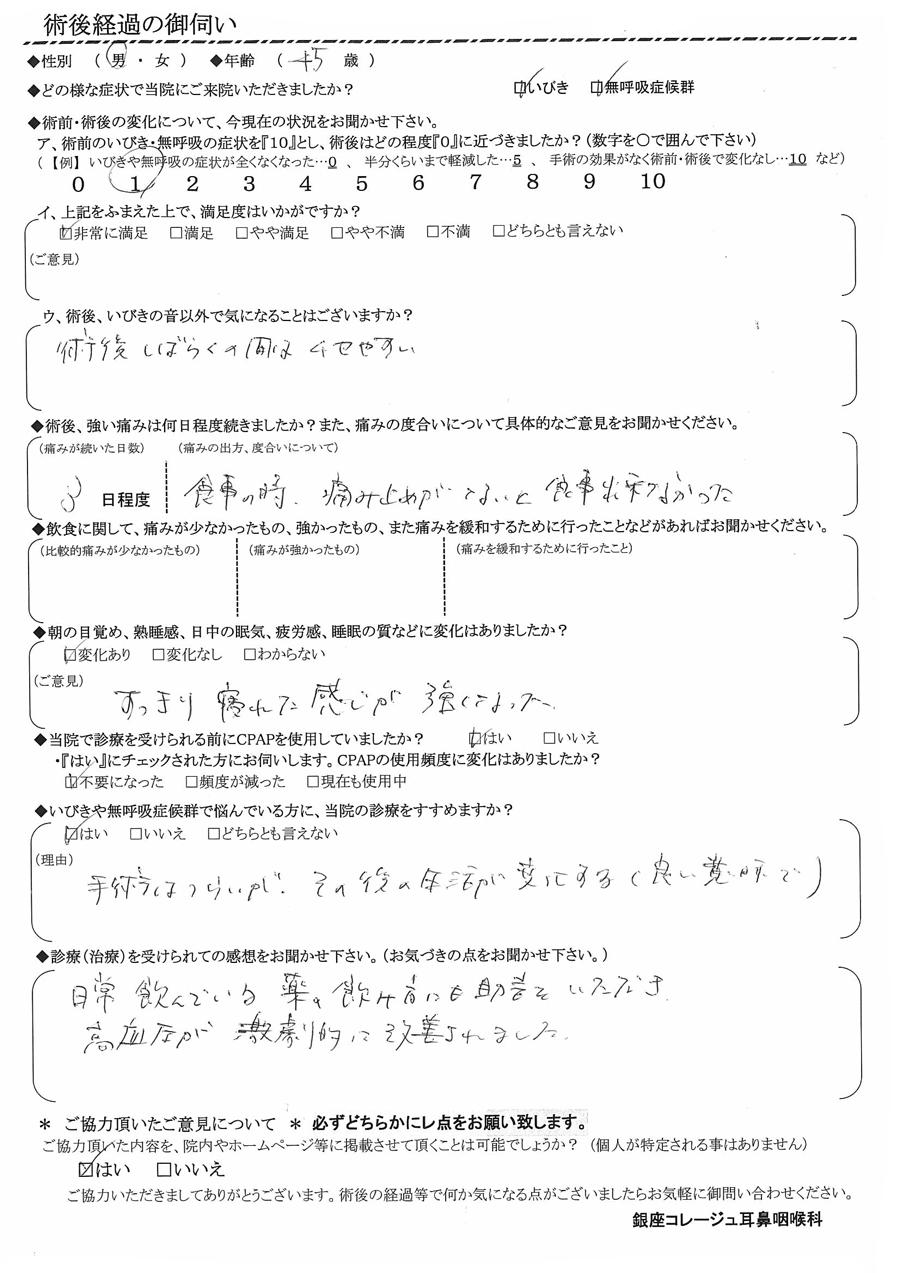 術後経過の御伺い
◆性別 （ 男 ・ 女 ） ◆年齢 （ 45 歳 ）
◆どの様な症状で当院にご来院いただきましたか？ ☑いびき ☑無呼吸症候群
◆術前・術後の変化について、今現在の状況をお聞かせ下さい。
ア、術前のいびき・無呼吸の症状を『10』とし、術後はどの程度『0』に近づきましたか？（数字を〇で囲んで下さい）
（【例】いびきや無呼吸の症状が全くなくなった…0 、 半分くらいまで軽減した…5 、 手術の効果がなく術前・術後で変化なし…10 など）
0 1 2 3 4 5 6 7 8 9 10
イ、上記をふまえた上で、満足度はいかがですか？
☑非常に満足 □満足 □やや満足 □やや不満 □不満 □どちらとも言えない
（ご意見）
ウ、術後、いびきの音以外で気になることはございますか？
術後しばらくの間は ムセやすい
◆術後、強い痛みは何日程度続きましたか？また、痛みの度合いについて具体的なご意見をお聞かせください。
（痛みが続いた日数） （痛みの出方、度合いについて）
日程度 食事の時、痛み止めがないと食事出来なかった
◆飲食に関して、痛みが少なかったもの、強かったもの、また痛みを緩和するために行ったことなどがあればお聞かせください。
（比較的痛みが少なかったもの） （痛みが強かったもの） （痛みを緩和するために行ったこと）
◆朝の目覚め、熟睡感、日中の眠気、疲労感、睡眠の質などに変化はありましたか？
☑変化あり □変化なし □わからない
（ご意見）
すっきり 寝れた 感じが 強くなった。
◆当院で診療を受けられる前にCPAPを使用していましたか？ ☑はい □いいえ
・『はい』にチェックされた方にお伺いします。CPAPの使用頻度に変化はありましたか？
☑不要になった □頻度が減った □現在も使用中
◆いびきや無呼吸症候群で悩んでいる方に、当院の診療をすすめますか？
☑はい □いいえ □どちらとも言えない
（理由）
手術はつらいが、その後の生活が変化する（良い意味で）
◆診療（治療）を受けられての感想をお聞かせ下さい。（お気づきの点をお聞かせ下さい。）
日常 飲んでいる 薬の飲み方にも助言をいただき
高血圧が 劇的に改善されました。
＊ ご協力頂いたご意見について ＊ 必ずどちらかにレ点をお願い致します。
ご協力頂いた内容を、院内やホームページ等に掲載させて頂くことは可能でしょうか？ （個人が特定される事はありません）
☑はい □いいえ
ご協力いただきましてありがとうございます。術後の経過等で何か気になる点がございましたらお気軽に御問い合わせください。
銀座コレージュ耳鼻咽喉科